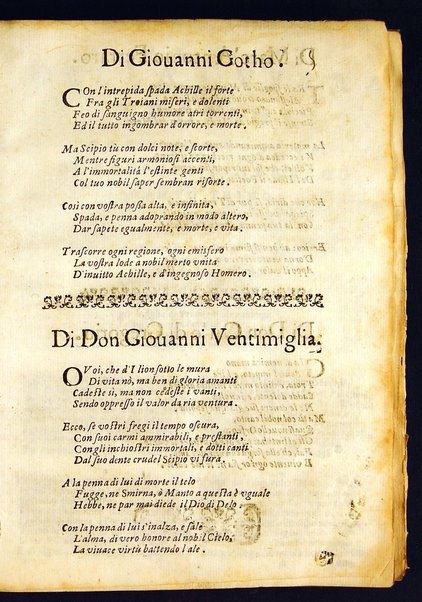 Di Giouanni Gotho.
COn l'intrepida spada Achille il forte
Fra gli Troiani miseri, e dolenti
Feo di sanguigno humore atri torrenti,
Ed il tutto ingombrar d'orrore, e morte.
Ma Scipio tù con dolci note, e scorte,
Mentre figuri armoniosi accenti,
A l'immortalità l'estinte genti
Col tuo nobil saper sembran risorte.
Cosi con vostra possa alta, e infinita,
Spada, e penna adoprando in modo altero,
Dar sapete egualmente, e morte, e vita.
Trascorre ogni regione, ogni emisfero
La vostra lode a nobil merto vnita
D'inuitto Achille, e d'ingegnoso Homero.
Di Don Giouanni Ventimiglia.
O Voi, che d'Ilion sotto le mura
Di vita nò, ma ben di gloria amanti
Cadeste sì, ma non cedeste i vanti,
Sendo oppresso il valor da ria ventura.
Ecco, se vostri fregi il tempo oscura,
Con suoi carmi ammirabili, e prestanti,
Con gli inchiostri immortali, e dotti canti
Dal suo dente crudel Scipio vi fura.
A la penna di lui di morte il telo
Fugge, ne Smirna, ò Manto a questa è vguale
Hebbe, ne par mai diede il Dio di Delo.
Con la penna di lui s'inalza, e sale
L'alma, di vero honore al nobil Cielo,
La viuace virtù battendo l'ale.